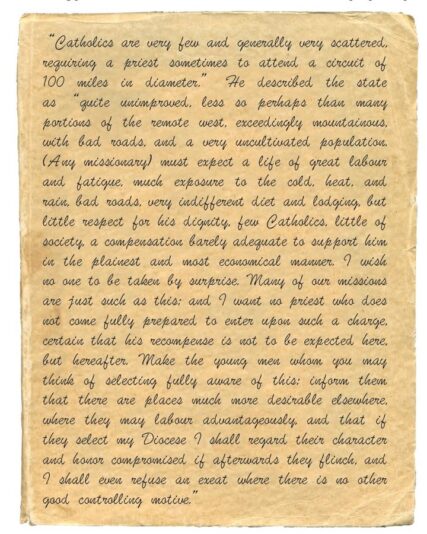 "Catholics are very few and generally very scattered,
requiring a priest sometimes to attend a circuit of
100 miles in diameter." He described the state
as "quite unimproved, less so perhaps than many
portions of the remote west, exceedingly mountainous,
with bad roads, and a very uncultivated population.
(Any missionary) must expect a life of great labour
and fatigue, much exposure to the cold, heat, and
rain, bad roads, very indifferent diet and lodging, but
little respect for his dignity, few Catholics, little of
society, a compensation barely adequate to support him
in the plainest and most economical manner. I wish
no one to be taken by surprise. Many of our missions
are just such as this; and I want no priest who does
not come fully prepared to enter upon such a charge,
certain that his recompense is not to be expected here,
but hereafter. Make the young men whom you may
think of selecting fully aware of this; inform them
that there are places much more desirable elsewhere,
where they may labour advantageously, and that if
they select my Diocese I shall regard their character
and honor compromised if afterwards they flinch, and
I shall even refuse an exeat where there is no other
good controlling motive."